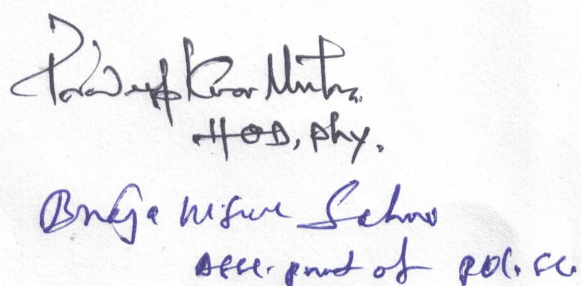 Pradeep Kumar Mishra
HOD, Phy.
Braja Kishore Sahoo
Asst. prof of pol. sc.